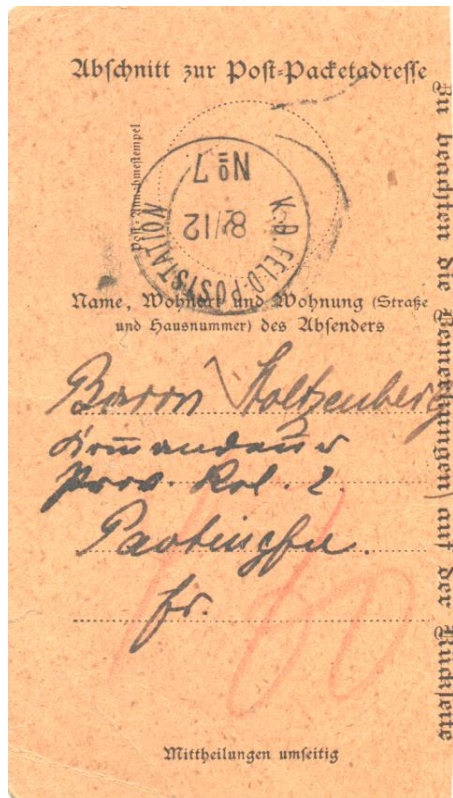 Abschnitt zur Post-Packetadresse
Post-Annahmestempel
K. D. FELD-POSTSTATION
No 7
8/12
Name, Wohnort und Wohnung (Straße
und Hausnummer) des Absenders
Baron Stoltzenberg
Kommandeur
Prov. Kol. 2.
Paotingfu.
fr.
Mittheilungen umseitig
Zu beachten die Bemerkungen auf der Rückseite